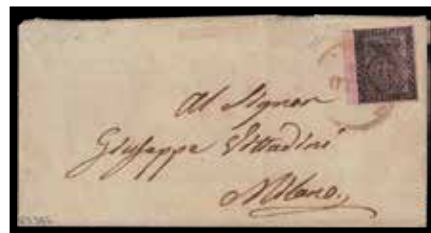 Al Signor
Giuseppe Vittadini
Milano